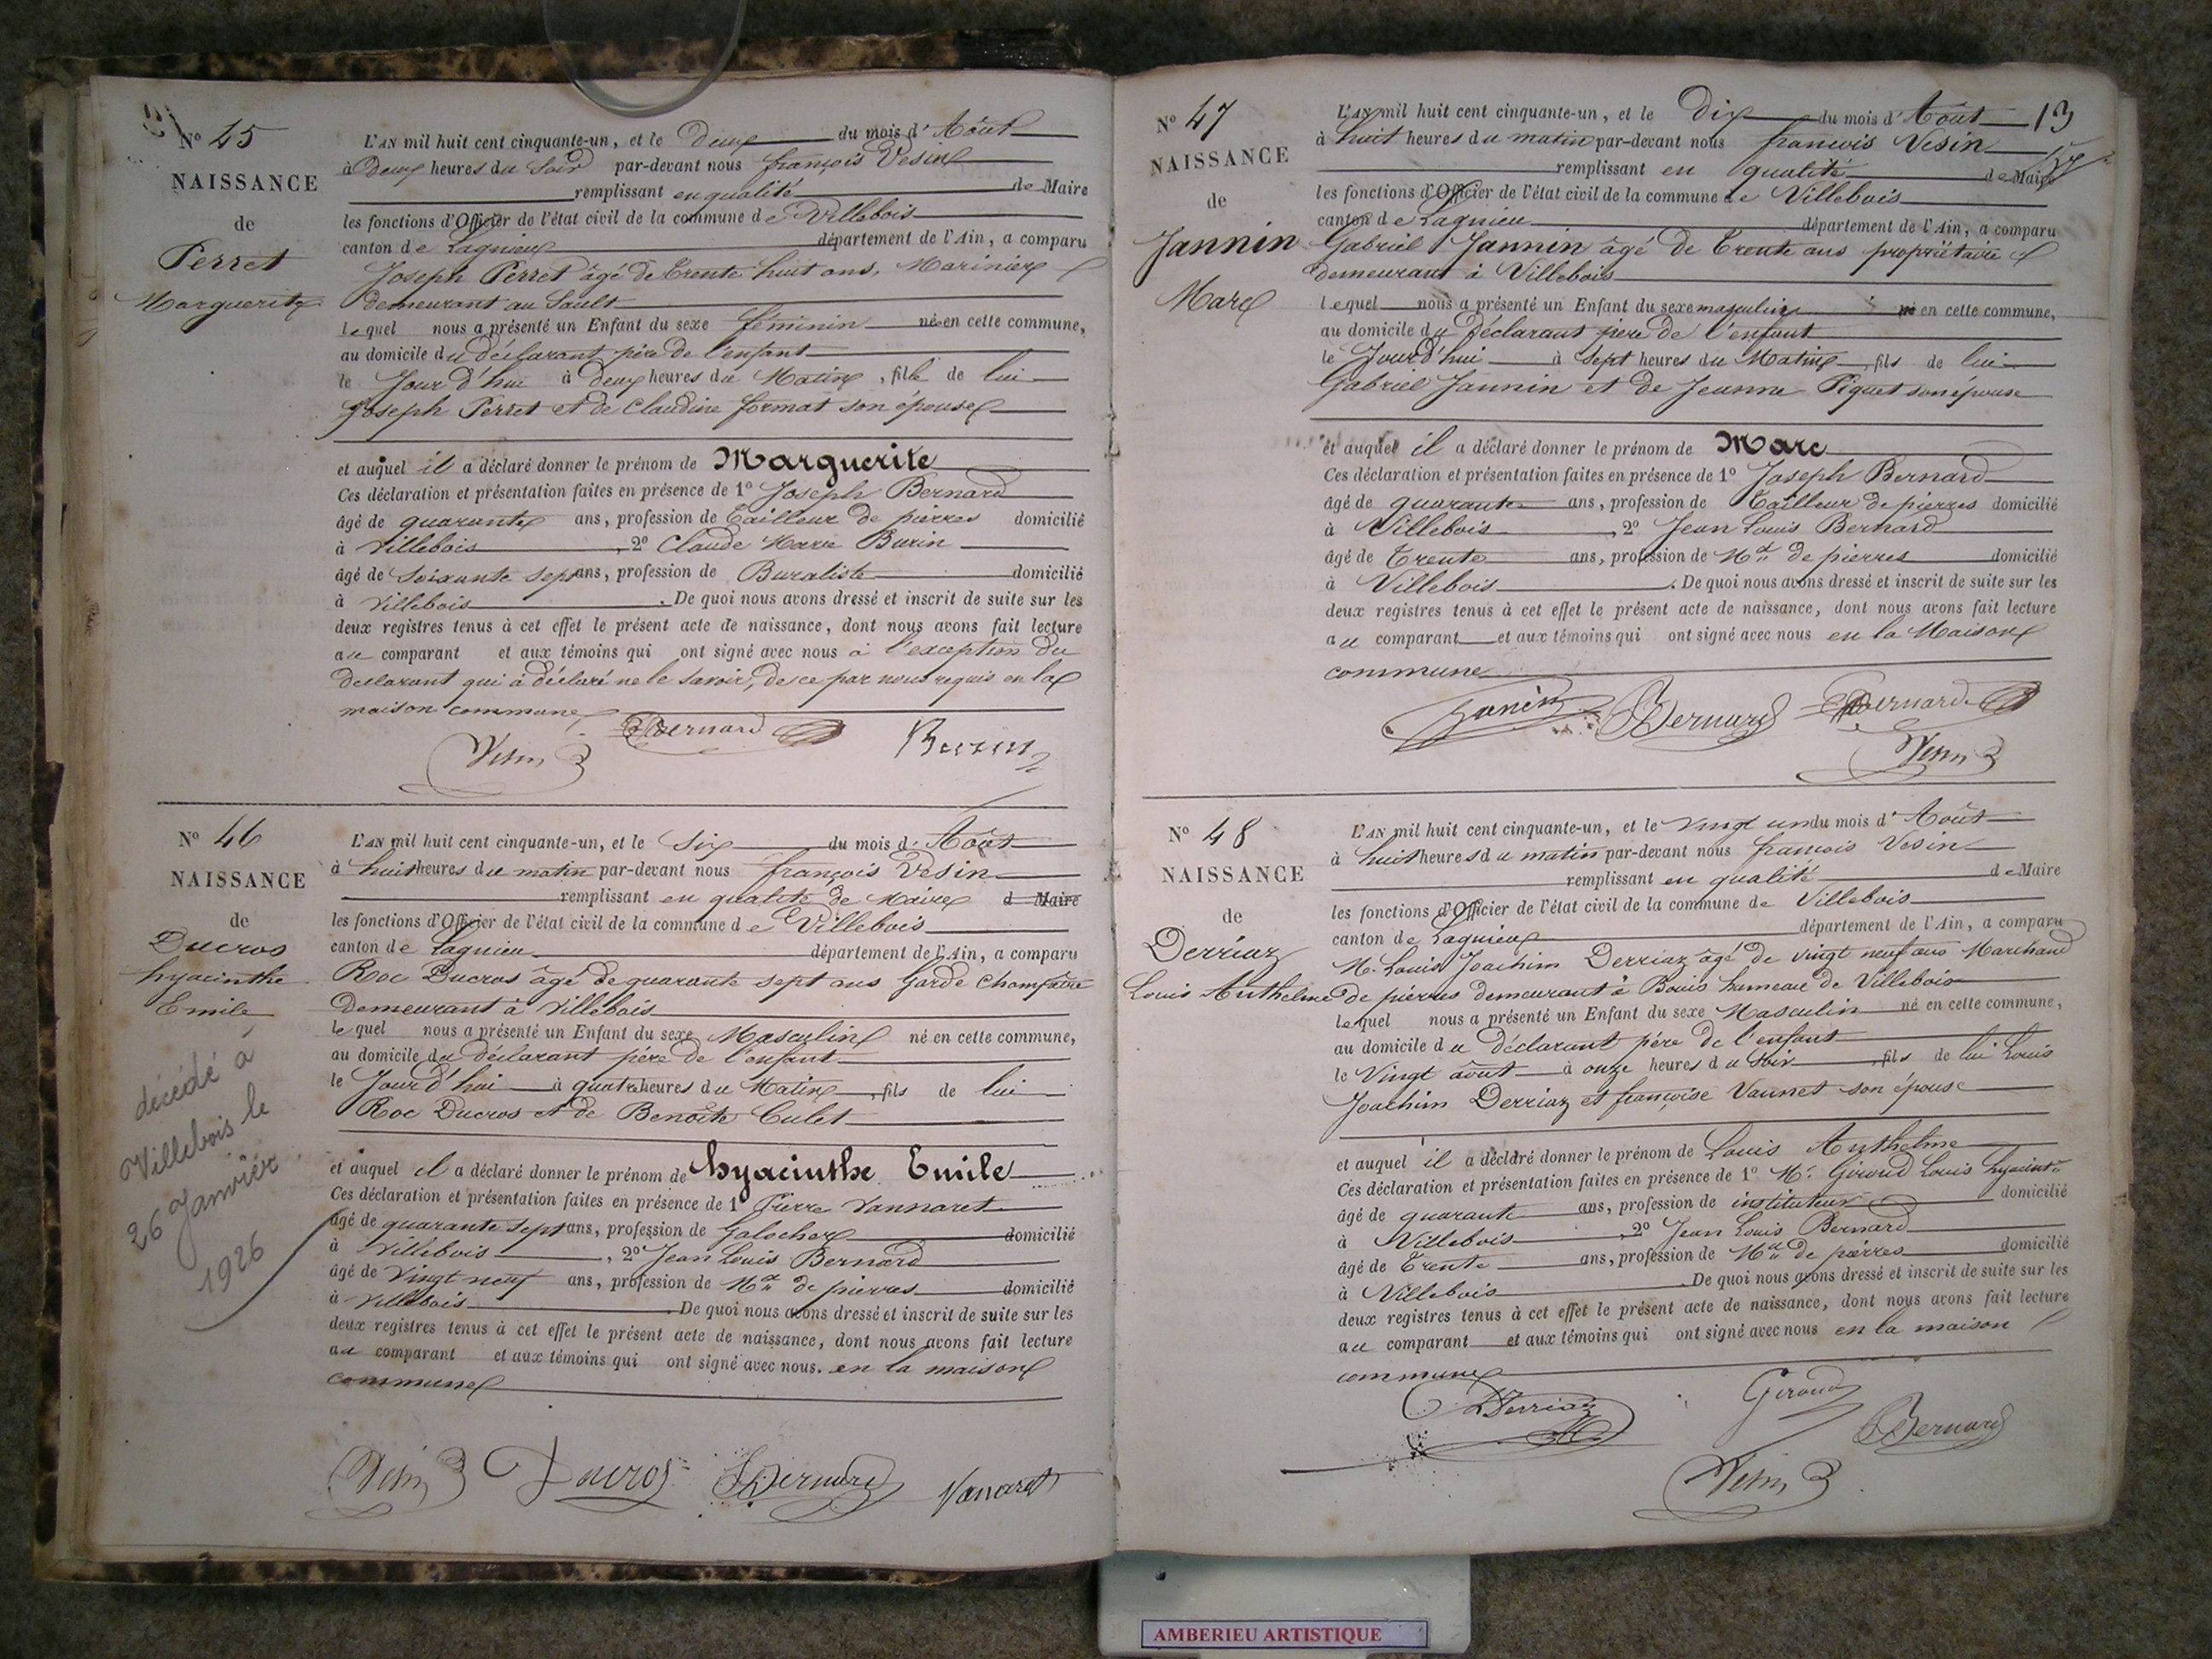 Nº 45
NAISSANCE
de
Perret
Marguerite
L'AN mil huit cent cinquante-un, et le Deux du mois d'Août
à Deux heures du Soir par-devant nous françois Vesin
remplissant en qualité de Maire
les fonctions d'Officier de l'état civil de la commune de Villebois
canton de Lagnieu département de l'Ain, a comparu
Joseph Perret âgé de Trente huit ans, Marinier
demeurant au Sault
lequel nous a présenté un Enfant du sexe féminin né en cette commune,
au domicile du déclarant père de l'enfant
le Jour d'hui à Deux heures du Matin, fille de lui
Joseph Perret et de Claudine format son épouse
et auquel il a déclaré donner le prénom de Marguerite
Ces déclaration et présentation faites en présence de 1º Joseph Bernard
âgé de quarante ans, profession de Tailleur de pierres domicilié
à Villebois, 2º Claude Marie Burin
âgé de Soixante sept ans, profession de Buraliste domicilié
à Villebois. De quoi nous avons dressé et inscrit de suite sur les
deux registres tenus à cet effet le présent acte de naissance, dont nous avons fait lecture
au comparant et aux témoins qui ont signé avec nous à l'exception du
déclarant qui à déclaré ne le savoir, de ce par nous requis en la
maison commune
Bernard Burin
Vesin
Nº 46
NAISSANCE
de
Ducros
hyacinthe
Emile
décédé à
Villebois le
26 Janvier
1926
L'AN mil huit cent cinquante-un, et le Six du mois d'Août
à huit heures du matin par-devant nous françois Vesin
remplissant en qualité de Maire d Maire
les fonctions d'Officier de l'état civil de la commune de Villebois
canton de Lagnieu département de l'Ain, a comparu
Roc Ducros âgé de quarante sept ans Garde Champêtre
Demeurant à Villebois
lequel nous a présenté un Enfant du sexe Masculin né en cette commune,
au domicile du déclarant père de l'enfant
le Jour d'hui à quatre heures du Matin, fils de lui
Roc Ducros et de Benoîte Culet
et auquel il a déclaré donner le prénom de hyacinthe Emile
Ces déclaration et présentation faites en présence de 1º Pierre Vannaret
âgé de quarante sept ans, profession de Galocher domicilié
à Villebois, 2º Jean Louis Bernard
âgé de Vingt neuf ans, profession de Md de pierres domicilié
à Villebois. De quoi nous avons dressé et inscrit de suite sur les
deux registres tenus à cet effet le présent acte de naissance, dont nous avons fait lecture
au comparant et aux témoins qui ont signé avec nous. en la maison
commune
Vesin Ducros Bernard Vanaret
13
Nº 47
NAISSANCE
de
Jannin
Marc
L'AN mil huit cent cinquante-un, et le Dix du mois d'Août
à huit heures du matin par-devant nous francois Vesin
remplissant en qualité de Maire
les fonctions d'Officier de l'état civil de la commune de Villebois
canton de Lagnieu département de l'Ain, a comparu
Gabriel Jannin âgé de Trente ans propriétaire
demeurant à Villebois
lequel nous a présenté un Enfant du sexe masculin né en cette commune,
au domicile du Déclarant père de l'enfant
le Jour d'hui à sept heures du Matin, fils de lui
Gabriel Jannin et de Jeanne Piquet son épouse
et auquel il a déclaré donner le prénom de Marc
Ces déclaration et présentation faites en présence de 1º Joseph Bernard
âgé de quarante ans, profession de Tailleur de pierres domicilié
à Villebois, 2º Jean Louis Bernard
âgé de Trente ans, profession de Md de pierres domicilié
à Villebois. De quoi nous avons dressé et inscrit de suite sur les
deux registres tenus à cet effet le présent acte de naissance, dont nous avons fait lecture
au comparant et aux témoins qui ont signé avec nous en la Maison
commune
Janin Bernard Bernard
Vesin
Nº 48
NAISSANCE
de
Derriaz
Louis Anthelme
L'AN mil huit cent cinquante-un, et le vingt un du mois d'Août
à huit heures du matin par-devant nous francois Vesin
remplissant en qualité de Maire
les fonctions d'Officier de l'état civil de la commune de Villebois
canton de Lagnieu département de l'Ain, a comparu
M. Louis Joachim Derriaz âgé de vingt neuf ans Marchand
de pierres demeurant à Bouis hameau de Villebois
lequel nous a présenté un Enfant du sexe Masculin né en cette commune,
au domicile du déclarant père de l'enfant
le Vingt août à onze heures du soir, fils de lui Louis
Joachim Derriaz et françoise Vannet son épouse
et auquel il a déclaré donner le prénom de Louis Anthelme
Ces déclaration et présentation faites en présence de 1º Mr Giroud Louis hyacinte
âgé de quarante ans, profession de instituteur domicilié
à Villebois, 2º Jean Louis Bernard
âgé de Trente ans, profession de Md de pierres domicilié
à Villebois. De quoi nous avons dressé et inscrit de suite sur les
deux registres tenus à cet effet le présent acte de naissance, dont nous avons fait lecture
au comparant et aux témoins qui ont signé avec nous en la maison
commune
Derriaz Giroud
Bernard
Vesin
AMBERIEU ARTISTIQUE